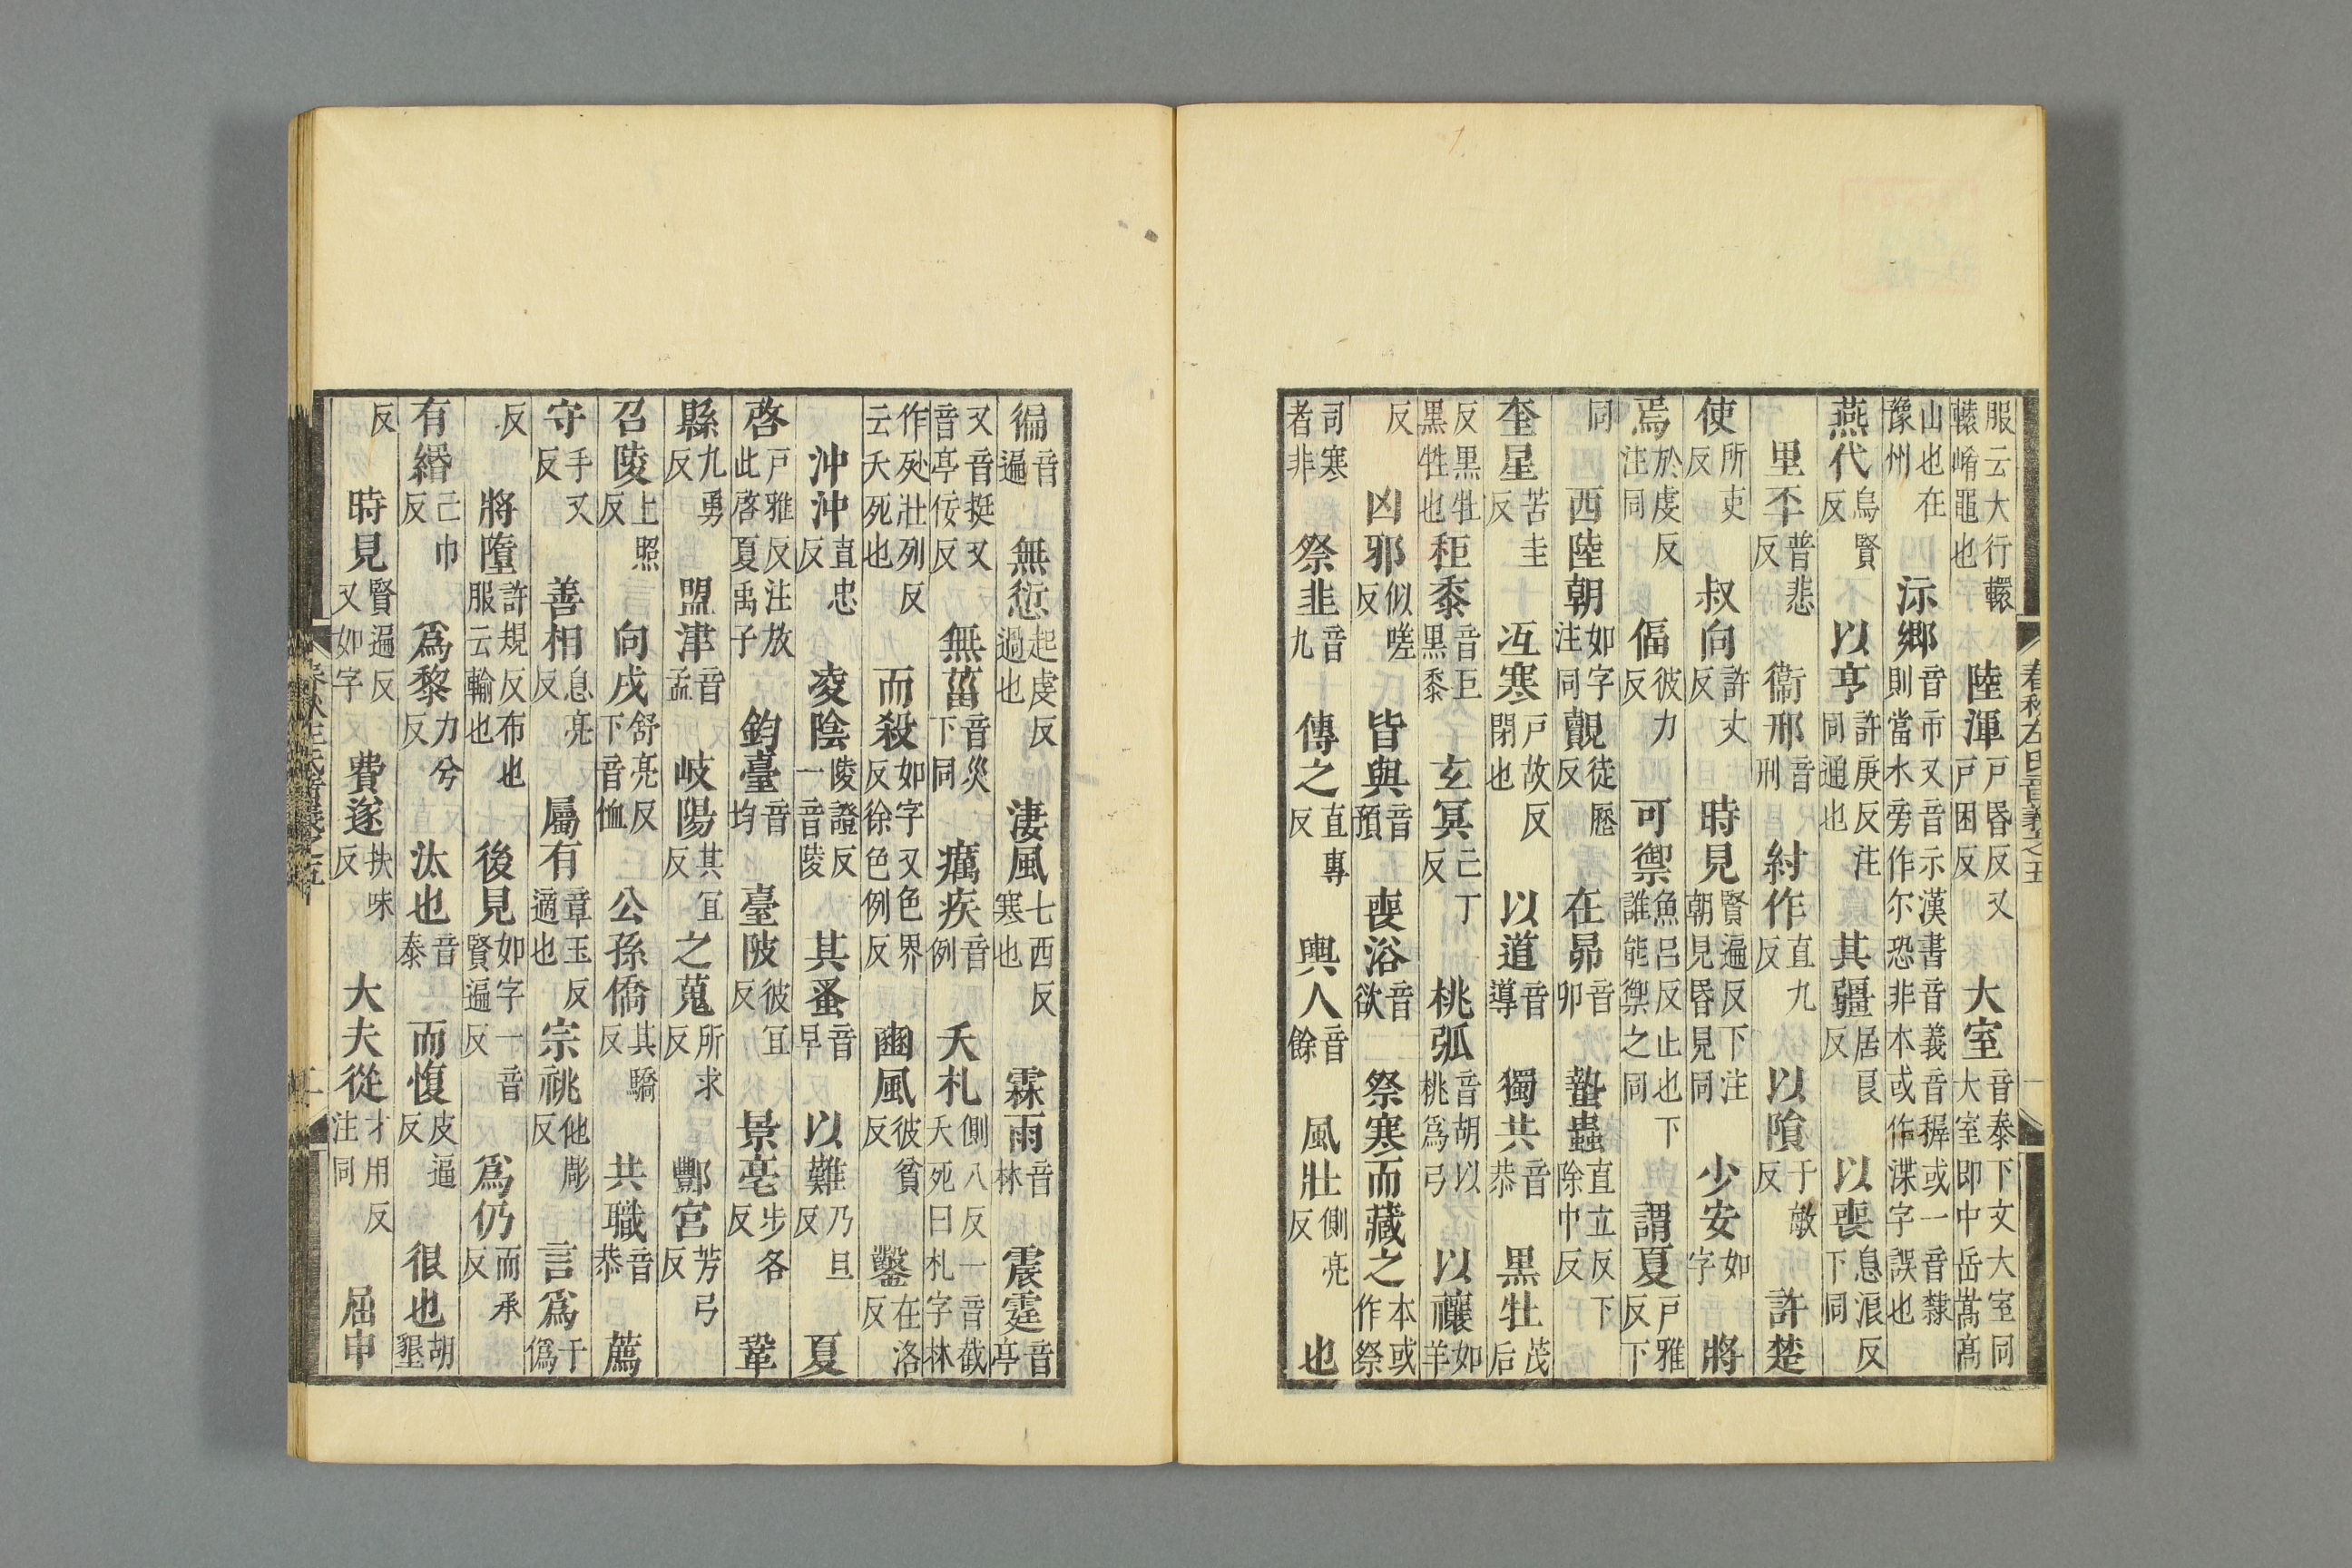 春秋左氏音義之五
服云大行轘轅崤黽也 陸渾戶昏反又戶困反 大室音泰下文大室同大室即中岳嵩高
山也在豫州 沶鄉音市又音示漢書音義音穉或一音隸則當水旁作尓恐非本或作渫字誤也
燕代烏賢反 以亨許庚反注同通也 其疆居良反 以喪息浪反下同
里丕普悲反 衞邢音刑 紂作直九反 以隕于敏反 許楚
使所吏反 叔向許丈反 時見賢遍反下注朝見昏見同 少安如字 將
焉於虔反注同 偪彼力反 可禦魚呂反止也下誰能禦之同 謂夏戶雅反下
同 西陸朝如字注同 覿徒歷反 在昴音卯 蟄蟲直立反下除中反
奎星苦圭反 沍寒戶故反閉也 以道音導 獨共音恭 黑牡茂后
反黑牡黑牲也 秬黍音巨黑黍 玄冥亡丁反 桃弧音胡以桃爲弓 以禳如羊
反 凶邪似嗟反 皆與音預 喪浴音欲 祭寒而藏之本或作祭
司寒者非 祭韭音九 傳之直專反 輿人音餘 風壯側亮反 也
徧音遍 無愆起虔反過也 淒風七西反寒也 霖雨音林 震霆音亭
又音挺又音亭佞反 無菑音災下同 癘疾音例 夭札側八反一音截夭死曰札字林
作𣧞壯列反云夭死也 而殺如字又色界反徐色例反 豳風彼貧反 鑿在洛反
沖沖直忠反 凌陰陵證反一音陵 其蚤音早 以難乃旦反 夏
啓戶雅反注放此啓夏禹子 鈞臺音均 臺陂彼宜反 景亳步各反 鞏
縣九勇反 盟津音孟 岐陽其宜反 之蒐所求反 酆宮芳弓反
召陵上照反 向戌舒亮反下音恤 公孫僑其驕反 共職音恭 薦
守手又反 善相息亮反 屬有章玉反適也 宗祧他彫反 言爲于僞
反 將墮許規反布也服云輸也 後見如字一音賢遍反 爲仍而承反
有緡己巾反 爲黎力兮反 汰也音泰 而愎皮逼反 很也胡墾
反 時見賢遍反又如字 費遂扶味反 大夫從才用反注同 屈申